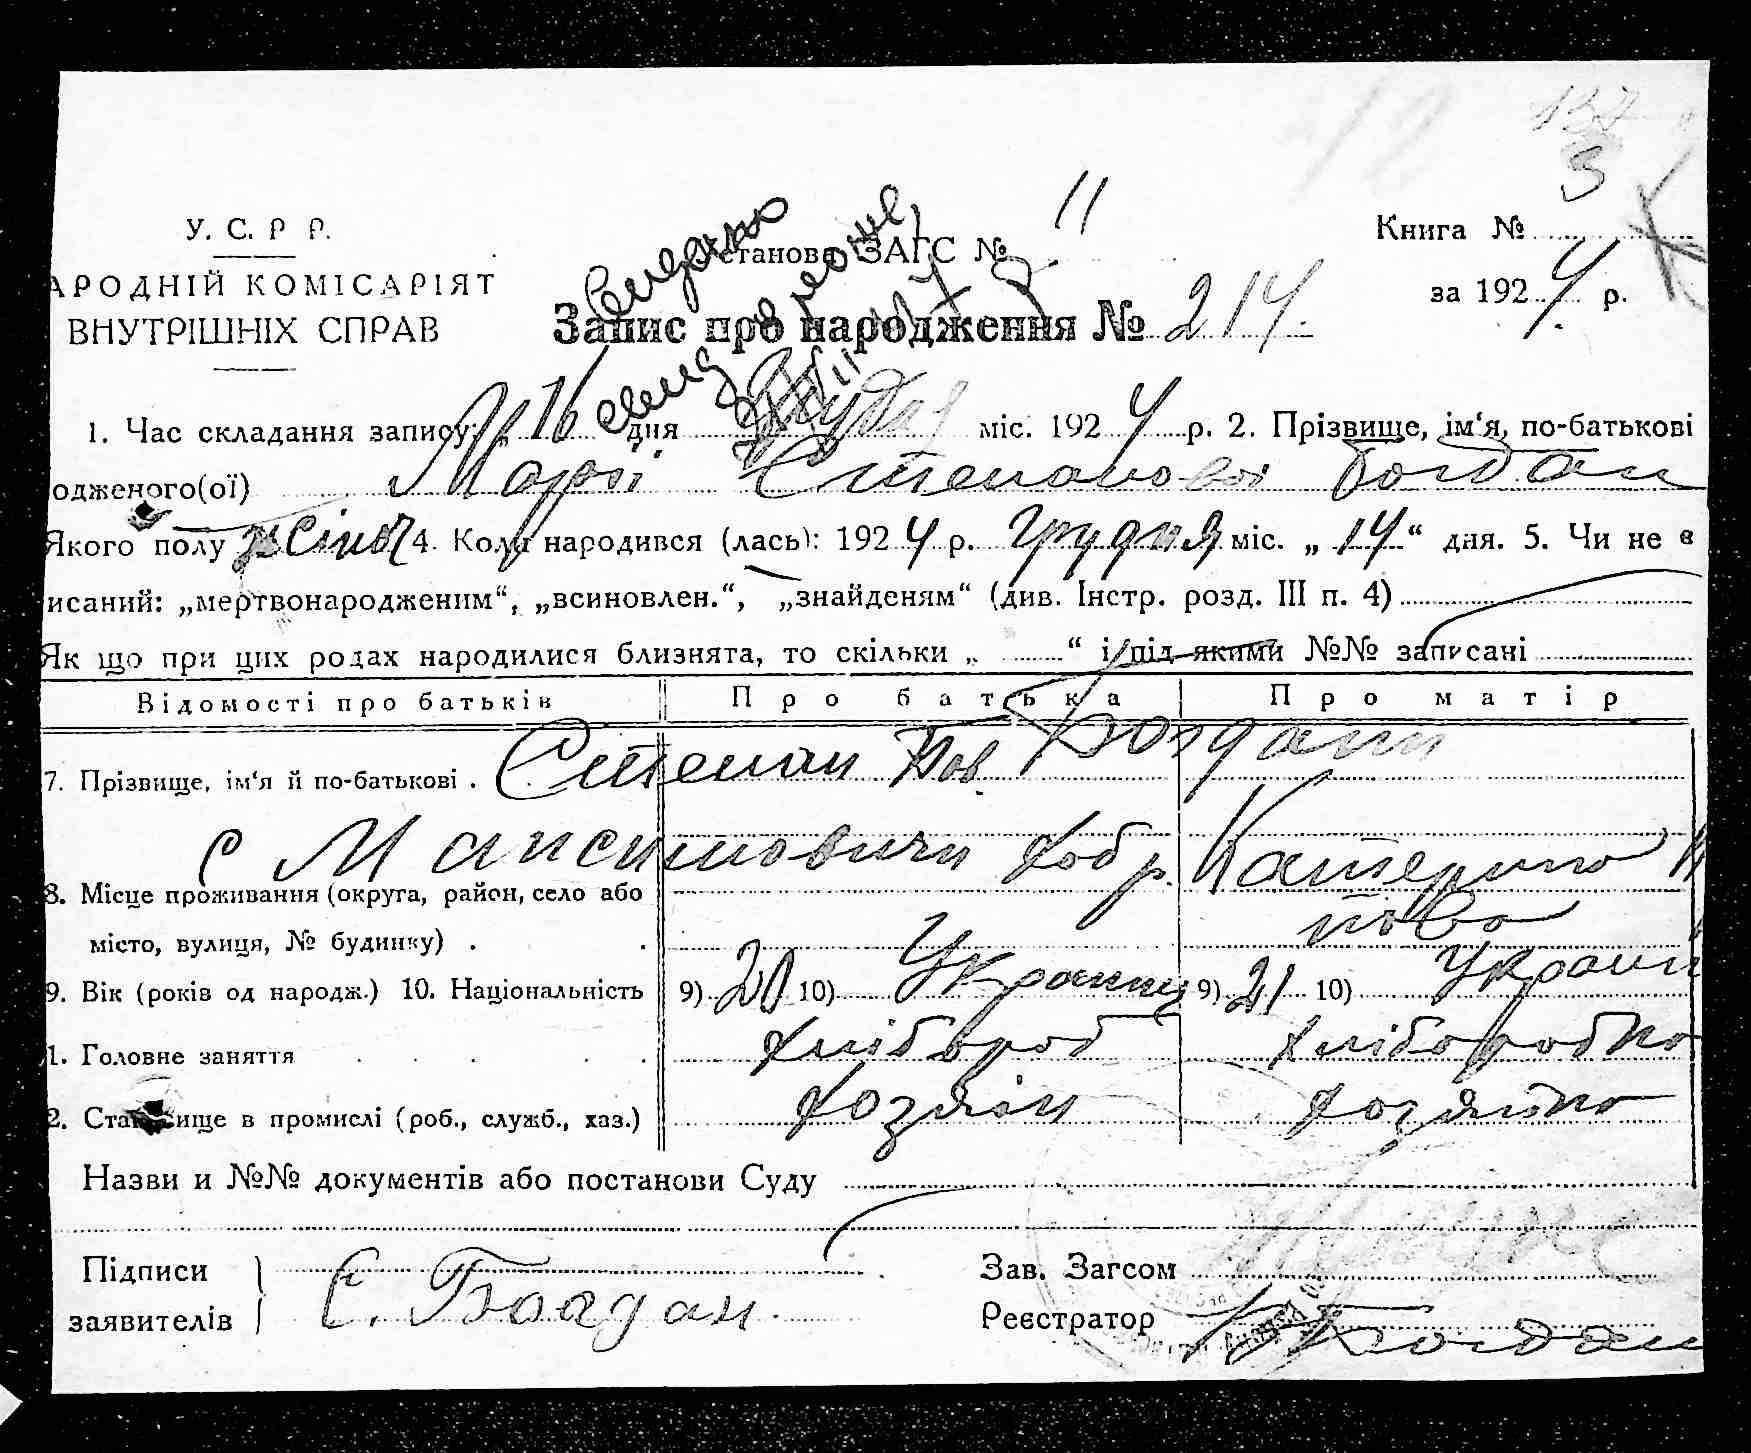 132
3
У. С. Р Р.
АРОДНІЙ КОМІСАРІЯТ
ВНУТРІШНІХ СПРАВ
становa ЗАГС № 11
Книга №
за 1924 р.
Запис про народження № 214.
1. Час складання запису: „ 16 дня міс. 1924 р. 2. Прізвище, ім‘я, по-батькові
одженого(ої) Марії Степанової Богдан
Якого полу жіноч 4. Коли народився (лась): 1924 р. Грудня міс. „ 14 “ дня. 5. Чи не є
исаний: „мертвонародженим“, „всиновлен.“, „знайденям“ (див. Інстр. розд. III п. 4)
Як що при цих родах народилися близнята, то скільки „ “ і під якими №№ записані
Відомості про батьків Про батька Про матір
7. Прізвище, ім‘я й по-батькові . Степан Пав. Богдани
с Максимовичи хобр. Катерина
8. Місце проживання (округа, район, село або
місто, вулиця, № будинку) .
9. Вік (років од народж.) 10. Національність 9) 20 10) Украинец 9) 21 10) Украин
1. Головне заняття Хлібороб Хліборобка
2. Становище в промислі (роб., служб., хаз.) хозяін хозяйка
Назви и №№ документів або постанови Суду
Підписи
заявителів С. Богдан.
Зав. Загсом
Реєстратор Богдан